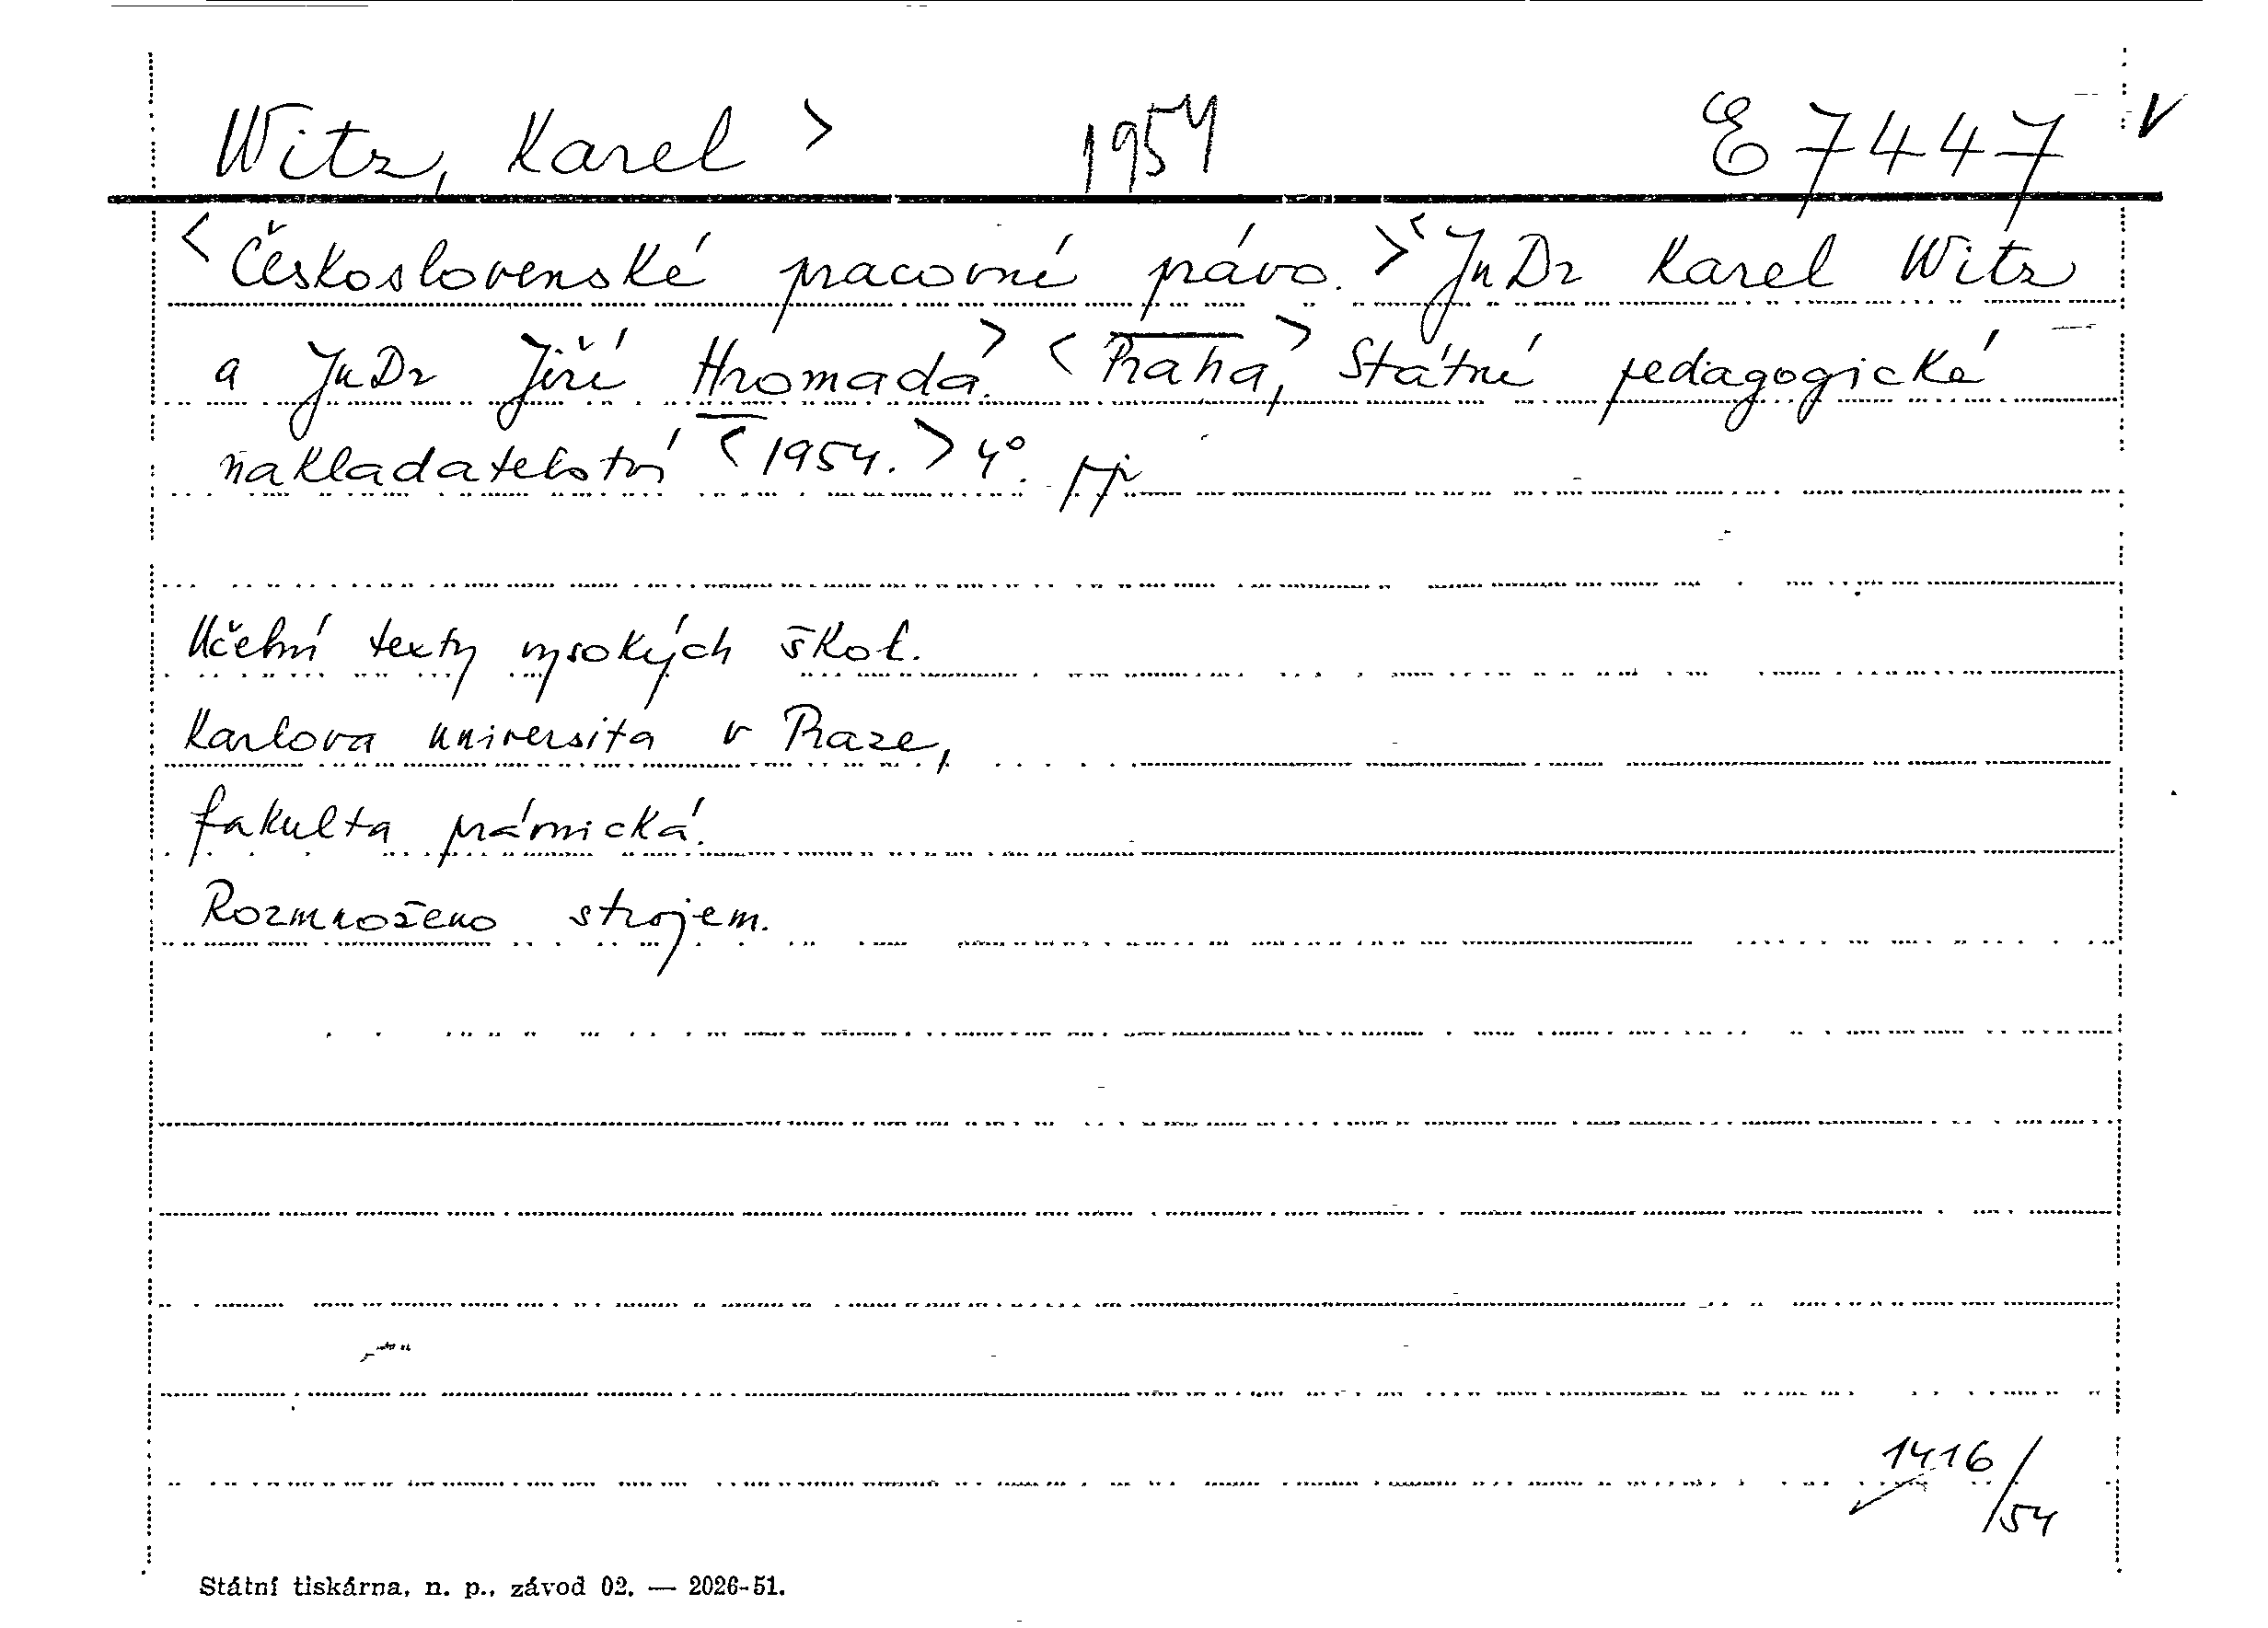 Witz, Karel > 1954 E 7447 V
<Československé pracovní právo.> <JuDr Karel Witz
a JuDr Jiří Hromada.> <Praha,> Státní pedagogické
nakladatelství <1954.> 4°.
Učební texty vysokých škol.
Karlova universita v Praze,
fakulta právnická.
Rozmnoženo strojem.
1416/54
Státní tiskárna, n. p., závod 02. — 2026-51.